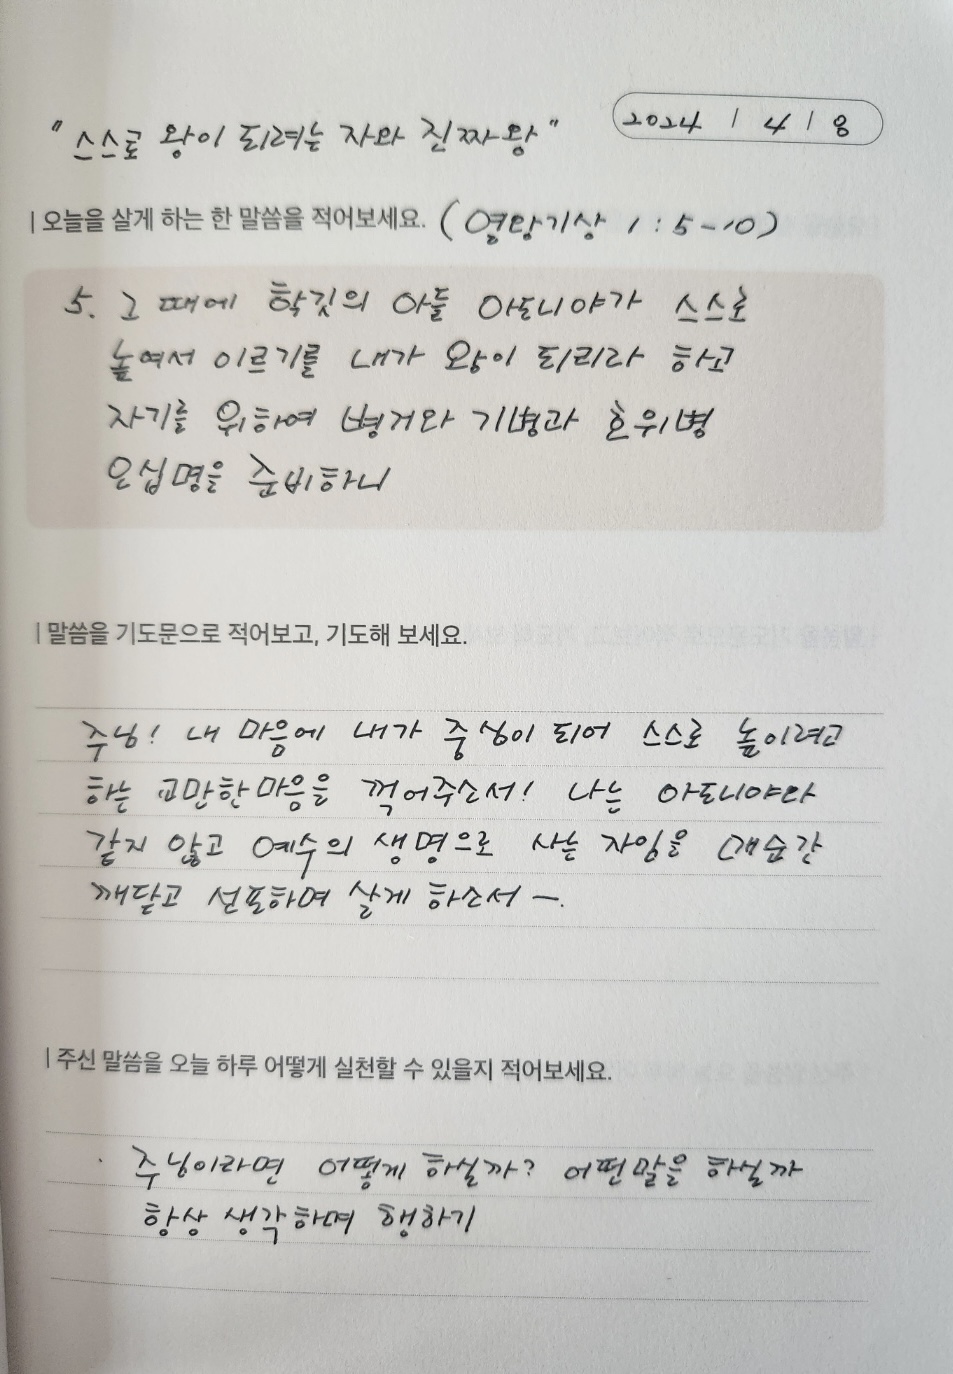 "스스로 왕이 되려는 자와 진짜왕"
2024 / 4 / 8
| 오늘을 살게 하는 한 말씀을 적어보세요. (열왕기상 1:5-10)
5. 그 때에 학깃의 아들 아도니야가 스스로
높여서 이르기를 내가 왕이 되리라 하고
자기를 위하여 병거와 기병과 호위병
오십명을 준비하니
| 말씀을 기도문으로 적어보고, 기도해 보세요.
주님! 내 마음에 내가 중심이 되어 스스로 높이려고
하는 교만한 마음을 꺽어주소서! 나는 아도니야와
같지 않고 예수의 생명으로 사는 자임을 매순간
깨닫고 선포하며 살게 하소서 -.
| 주신 말씀을 오늘 하루 어떻게 실천할 수 있을지 적어보세요.
· 주님이라면 어떻게 하실까? 어떤말을 하실까
항상 생각하며 행하기